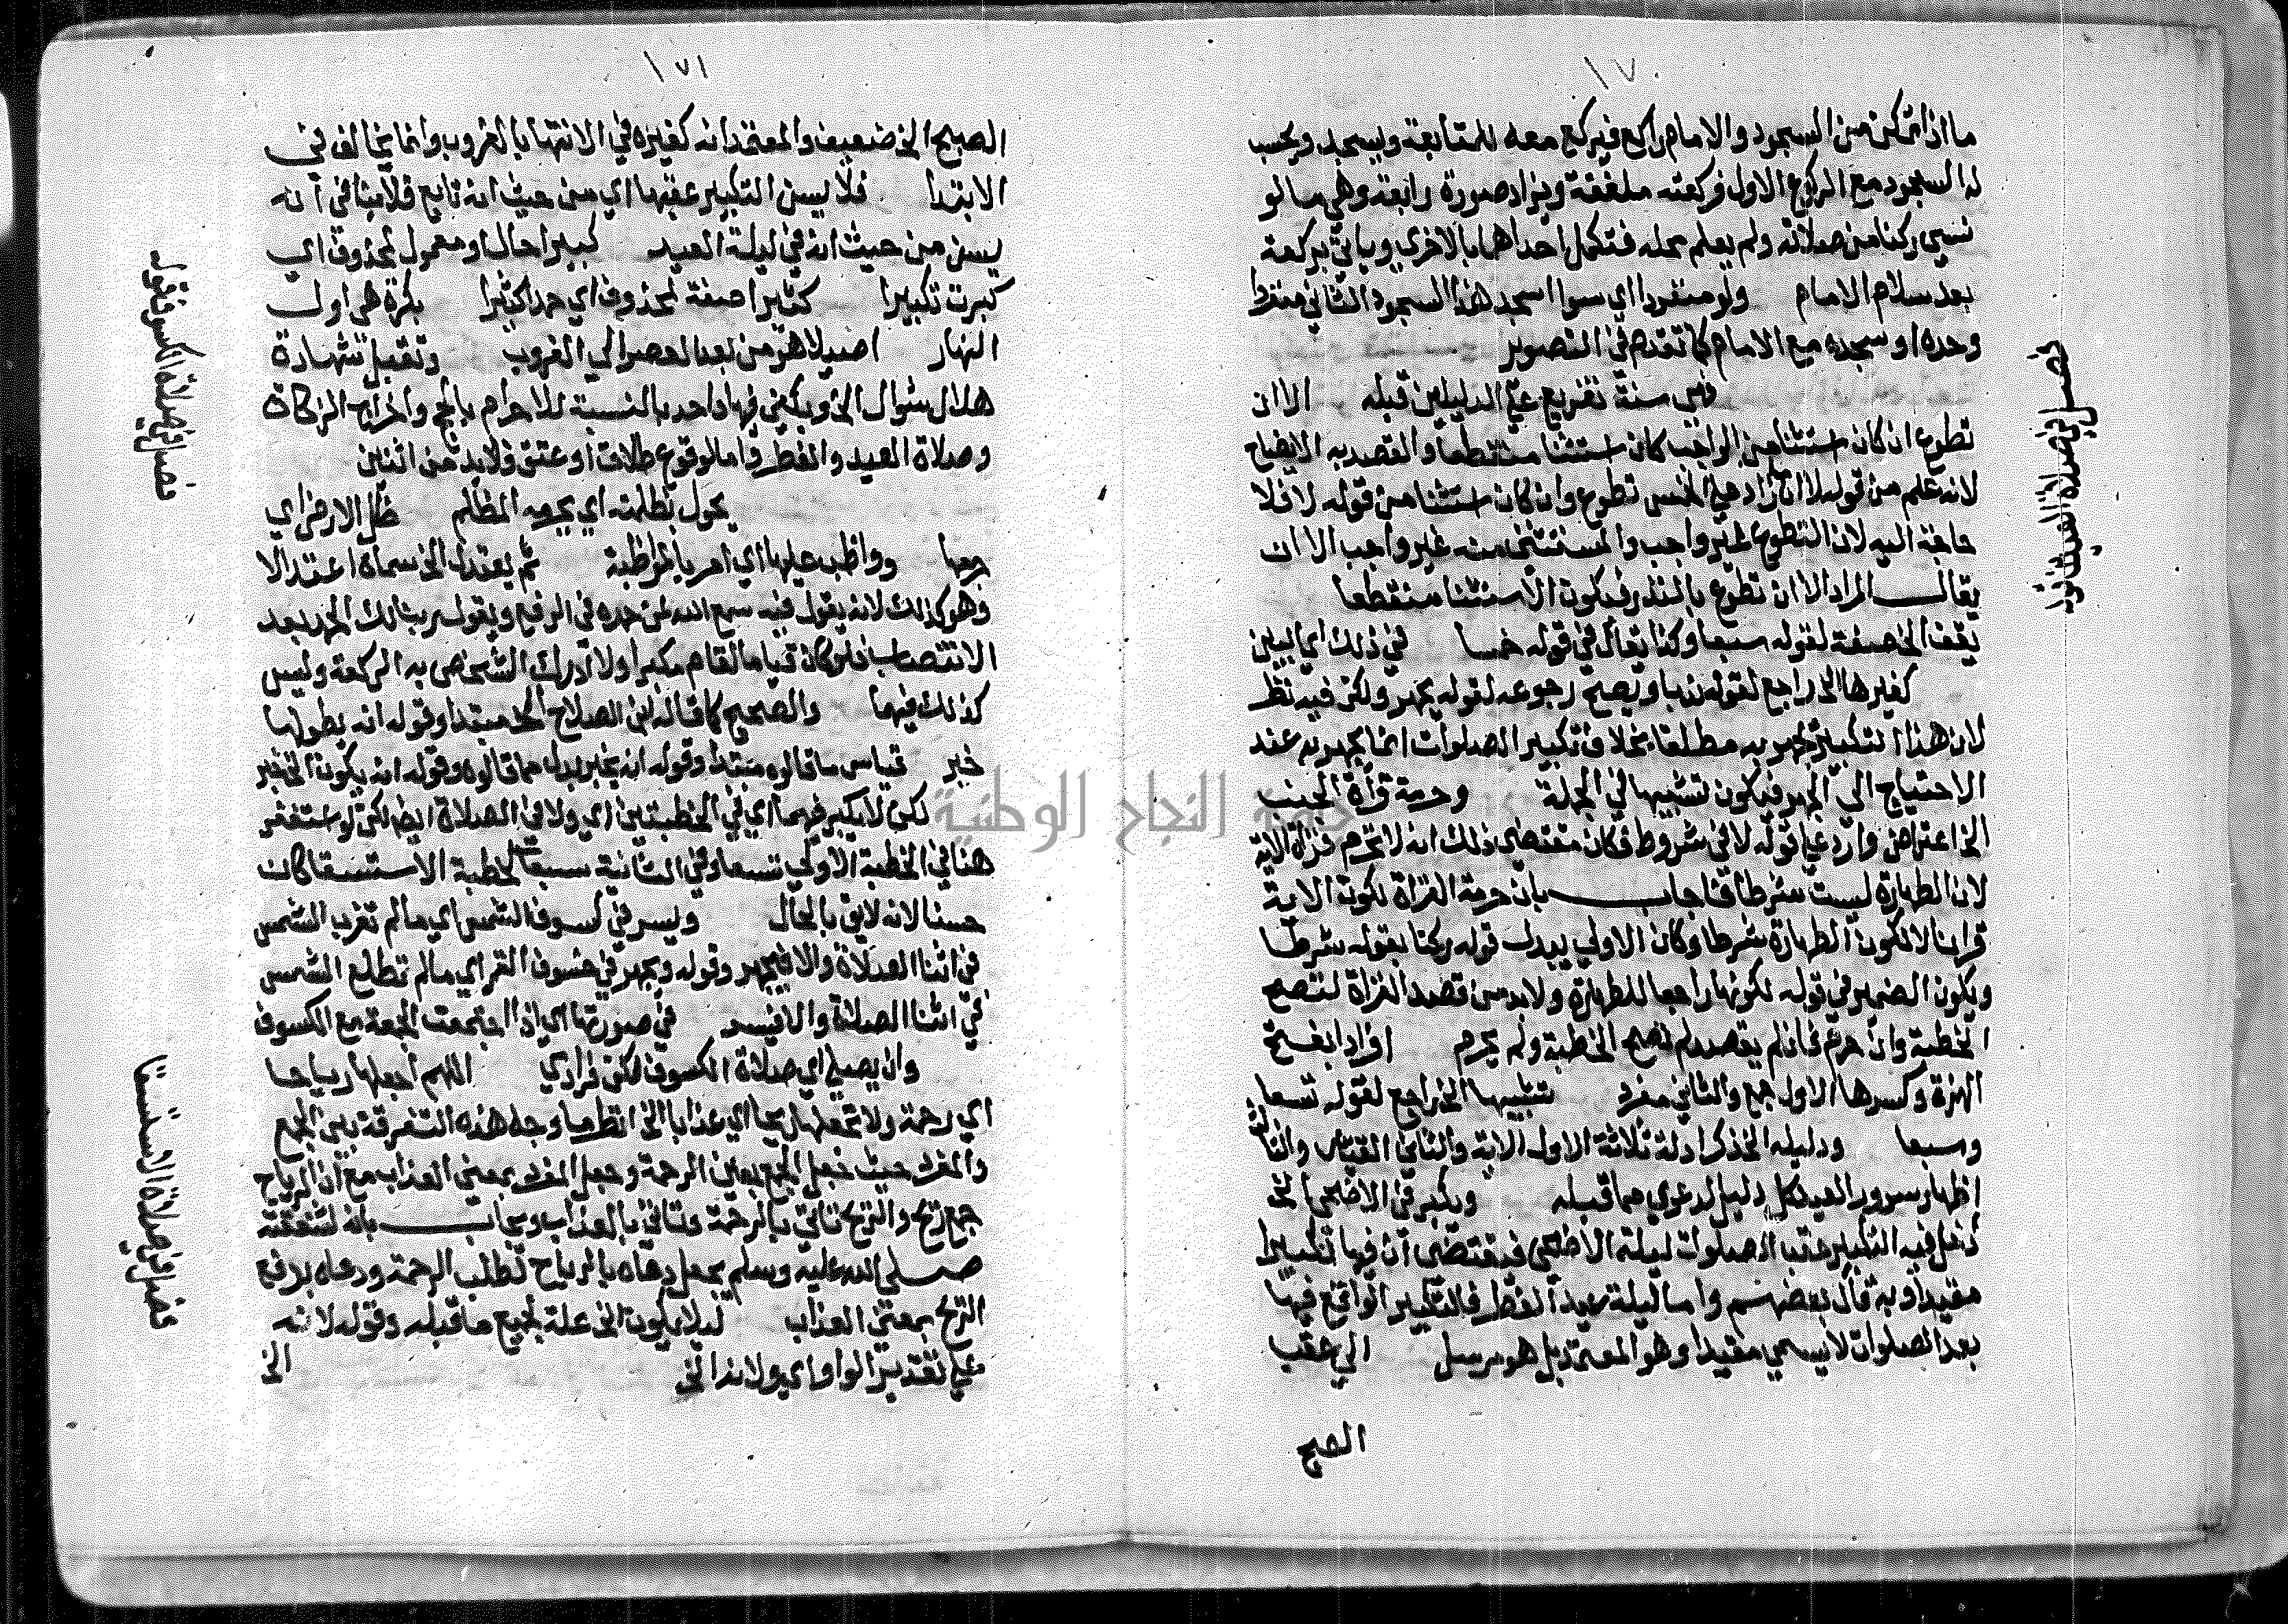 ١٧٠
ما اذا تمكن من السجود والامام راكع فيركع معه للمتابعة ويسجد ويحسب
له السجود مع الركوع الاول فركعته ملفقة ويزاد صورة رابعة وهي ما لو
نسي ركنا من صلاته ولم يعلم محله فتكمل احداها بالاخري وياتي بركعة
بعد سلام الامام ولو منفردا اي سوا سجد هذا السجود الثاني منفردا
وحده او سجده مع الامام كما تقدم في التصوير
فصل في صلاة العيدين قوله
هي سنة تفريع علي الدليلين قبله الا ان
تطوع ان كان استثنا من الواجب كان استثنا منقطعا والقصد به الايضاح
لانه علم من قوله لا ان ما زاد علي الخمس تطوع وان كان استثنا من قوله لا فلا
حاجة اليه لان التطوع غير واجب والمستثني منه غير واجب الا ان
يقال المراد الا ان تطوع بالنذر فيكون الاستثنا منقطعا
يقف الخ صفة لقوله سبعا وكذا يقال في قوله خمسا في ذلك اي بين
كغيرها الخ راجع لقوله ندبا ويصح رجوعه لقوله يجهر ولكن فيه نظر
لان هذا التكبير يجهر به مطلقا بخلاف تكبير الصلوات انما يجهر به عند
الاحتياج الي الجهر فيكون تشبيها في الجملة وحرمة قراة الجنب
الخ اعتراض وارد علي قوله لا في شروط فكان مقتضي ذلك انه لا تحرم قراة الاية
لان الطهارة ليست شرطا فاجاب بان حرمة القراة لكون الاية
قرانا لا لكون الطهارة شرطا وكان الاولي يبدل قوله ركنا بقوله شرطا
ويكون الضمير في قوله لكونها راجعا للطهارة ولا بد من قصد القراة لتصح
الخطبة وان حرم فان لم يقصد لم تصح الخطبة ولم يحرم افرادا بفتح
الهمزة وكسرها الاول جمع والثاني مفرد تشبيها الخ راجع لقوله تسعا
وسبعا ودليله الخ ذكر ادلة ثلاثة الاول الاية والثاني القياس والثالث
اظهار سرور العيد كل دليل لدعوي مما قبله ويكبر في الاضحي الخ
دخل فيه التكبير عقب الصلوات ليلة الاضحي فيقتضي ان فيها تكبيرا
مقيدا وبه قال بعضهم واما ليلة عيد الفطر فالتكبير الواقع فيها
بعد الصلوات لا يسمي مقيدا وهو المعتمد بل هو مرسل الي عقب
الصبح
١٧١
الصبح الخ ضعيف والمعتمد انه كغيره في الانتها بالغروب وانما يخالف في
الابتدا فلا يسن التكبير عقبها اي من حيث انه تابع فلا ينافي انه
يسن من حيث انه في ليلة العيد كبيرا حال او معمول لمحذوف اي
كبرت تكبيرا كثيرا صفة لمحذوف اي حمدا كثيرا بكرة هي اول
النهار اصيلا هو من بعد العصر الي الغروب وتقبل شهادة
هلال شوال الخ ويكفي فيها واحد بالنسبة للاحرام بالحج واخراج الزكاة
وصلاة العيد والفطر واما لوقوع طلاق او عتق فلابد من اثنين
فصل في صلاة الكسوف قوله
يحول بظلمته اي بجرمه المظلم ظل الارض اي
جرمها وواظب عليها اي امر بالمواظبة ثم يعتدل الخ سماه اعتدالا
وهو كذلك لانه يقول فيه سمع الله لمن حمده في الرفع ويقول ربنا لك الحمد بعد
الانتصاب فلو كان قياما لقام مكبرا ولادرك الشخص به الركعة وليس
كذلك فيهما والصحيح كما قاله ابن الصلاح الخ مبتدا وقوله انه يطولها
خبر قياس ما قالوه مبتدا وقوله انه يخير بدل مما قالوه وقوله انه يكون الخ خبر
لكن لا يكبر فيهما اي في الخطبتين اي ولا في الصلاة ايضا لكن لو استغفر
هنا في الخطبة الاولي تسعا وفي الثانية سبعا كخطبة الاستسقا كان
حسنا لانه لايق بالحال ويسر في كسوف الشمس اي ما لم تغرب الشمس
في اثنا الصلاة والا فيجهر وقوله ويجهر في خسوف القمر اي ما لم تطلع الشمس
في اثنا الصلاة والا فيسر في صورتها اي اذا اجتمعت الجمعة مع الكسوف
فصل في صلاة الاستسقا
وان يصلي اي صلاة الكسوف لكن فرادي اللهم اجعلها رياحا
اي رحمة ولا تجعلها ريحا اي عذابا الخ انظر ما وجه هذه التفرقة بين الجمع
والمفرد حيث جعل الجمع بمعني الرحمة وجعل المفرد بمعني العذاب مع ان الرياح
جمع ريح والريح تاتي بالرحمة وتاتي بالعذاب ويجاب بانه لشفقته
صلي الله عليه وسلم يجعل دعاه بالرياح لطلب الرحمة ودعاه برفع
الريح بمعني العذاب ليلا يكون الخ علة لجميع ما قبله وقوله لانه
علي تقدير الواو اي ولانه الخ الخ
جامعة النجاح الوطنية